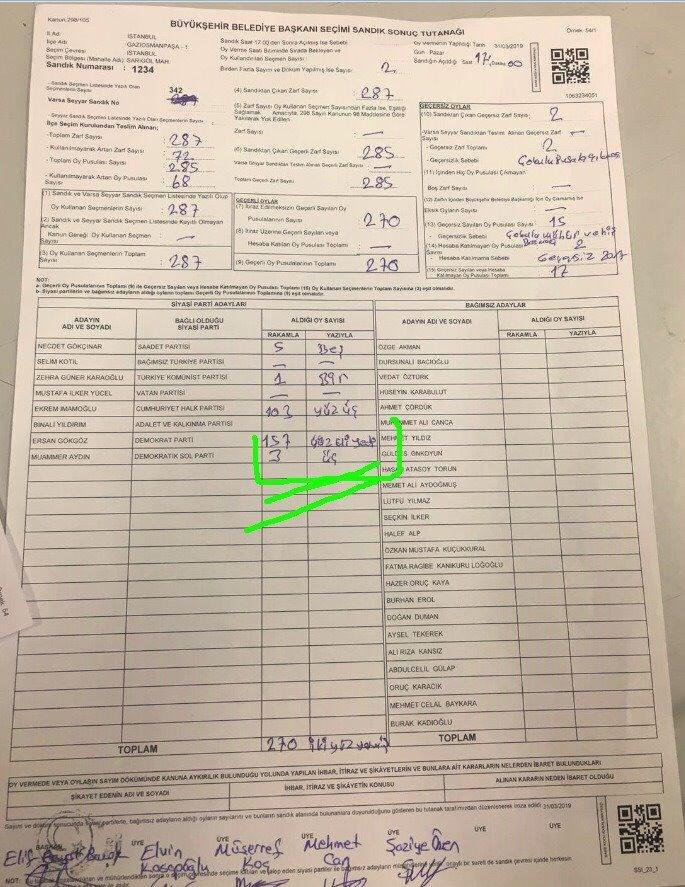 Kanun: 298/105
BÜYÜKŞEHİR BELEDİYE BAŞKANI SEÇİMİ SANDIK SONUÇ TUTANAĞI
Örnek: 54/1
İl Adı : İSTANBUL
İlçe Adı : GAZİOSMANPAŞA - 1
Seçim Çevresi : İSTANBUL
Seçim Bölgesi (Mahalle Adı): SARIGÖL MAH.
Sandık Numarası : 1234
Sandık Saat 17:00'den Sonra Açılmış İse Sebebi
Oy Verme Saati Bitiminde Sırada Bekleyen ve
Oy Kullandırılan Seçmen Sayısı
Birden Fazla Sayım ve Döküm Yapılmış İse Sayısı : 2
Oy Vermenin Yapıldığı Tarih : 31/03/2019
Gün : Pazar
Sandığın Açıldığı Saat 17, Dakika 00
1063234051
- Sandık Seçmen Listesinde Yazılı Olan
Seçmenlerin Sayısı : 342
Varsa Seyyar Sandık No
- Seyyar Sandık Seçmen Listesinde Yazılı Olan
Seçmenlerin Sayısı
İlçe Seçim Kurulundan Teslim Alınan;
-Toplam Zarf Sayısı : 287
- Kullanılmayarak Artan Zarf Sayısı : 72
- Toplam Oy Pusulası Sayısı : 285
- Kullanılmayarak Artan Oy Pusulası
Sayısı : 68
(1) Sandık ve Varsa Seyyar Sandık Seçmen Listesinde Yazılı Olup
Oy Kullanan Seçmenlerin Sayısı : 287
(2) Sandık ve Seyyar Sandık Seçmen Listesinde Kayıtlı Olmayan
Ancak
Kanun Gereği Oy Kullanan Seçmen Sayısı : —
(3) Oy Kullanan Seçmenlerin Toplam
Sayısı : 287
(4) Sandıktan Çıkan Zarf Sayısı : 287
(5) Zarf Sayısı Oy Kullanan Seçmen Sayısından Fazla İse, Eşitliği
Sağlamak Amacıyla, 298 Sayılı Kanunun 98 Maddesine Göre
Yakılarak Yok Edilen
Zarf Sayısı : —
(6) Sandıktan Çıkan Geçerli Zarf Sayısı : 285
Varsa Seyyar Sandıktan Teslim Alınan Geçerli Zarf Sayısı : —
Toplam Geçerli Zarf Sayısı : 285
GEÇERLİ OYLAR
(7) İtiraz Edilmeksizin Geçerli Sayılan Oy
Pusulalarının Sayısı : 270
(8) İtiraz Üzerine Geçerli Sayılan veya
Hesaba Katılan Oy Pusulası Sayısı : —
(9) Geçerli Oy Pusulalarının Toplamı : 270
GEÇERSİZ OYLAR
(10) Sandıktan Çıkan Geçersiz Zarf Sayısı : 2
-Varsa Seyyar Sandıktan Teslim Alınan Geçersiz Zarf
Sayısı : —
- Geçersiz Zarf Toplamı : 2
- Geçersizlik Sebebi :
(11) İçinden Hiç Oy Pusulası Çıkmayan
Boş Zarf Sayısı : —
(12) Zarfın İçinden Büyükşehir Belediye Başkanlığı İçin Oy Çıkmamış İse
Eksik Oyların Sayısı : —
(13) Geçersiz Sayılan Oy Pusulası Sayısı : 15
- Geçersizlik Sebebi :
(14) Hesaba Katılmayan Oy Pusulası Sayısı : 2
Hesaba Katılmama Sebebi : Geçersiz Zarf
(15) Geçersiz Sayılan veya Hesaba
Katılmayan Oy Pusulası Toplamı : 17
NOT:
a- Geçerli Oy Pusulalarının Toplamı (9) ile Geçersiz Sayılan veya Hesaba Katılmayan Oy Pusulası Toplamı (15) Oy Kullanan Seçmenlerin Toplam Sayısına (3) eşit olmalıdır.
b- Siyasi partilerin ve bağımsız adayların aldığı oyların toplamı Geçerli Oy Pusulalarının Toplamına (9) eşit olmalıdır.
SİYASİ PARTİ ADAYLARI
BAĞIMSIZ ADAYLAR
ADAYIN ADI VE SOYADI
BAĞLI OLDUĞU SİYASİ PARTİ
ALDIĞI OY SAYISI
RAKAMLA YAZIYLA
ADAYIN ADI VE SOYADI
ALDIĞI OY SAYISI
RAKAMLA YAZIYLA
NECDET GÖKÇINAR SAADET PARTİSİ 5 Beş
SELİM KOTİL BAĞIMSIZ TÜRKİYE PARTİSİ — —
ZEHRA GÜNER KARAOĞLU TÜRKİYE KOMÜNİST PARTİSİ 1 Bir
MUSTAFA İLKER YÜCEL VATAN PARTİSİ — —
EKREM İMAMOĞLU CUMHURİYET HALK PARTİSİ 103 yüz üç
BİNALİ YILDIRIM ADALET VE KALKINMA PARTİSİ
ERSAN GÖKGÖZ DEMOKRAT PARTİ 157 yüz elli yedi
MUAMMER AYDIN DEMOKRATİK SOL PARTİ 3 üç
ÖZGE AKMAN
DURSUNALİ BACIOĞLU
VEDAT ÖZTÜRK
HÜSEYİN KARABULUT
AHMET ÇÖRDÜK
MUHAMMET ALİ CANCA
MEHMET YILDIZ
GÜLDES ÖNKOYUN
HASAN ATASOY TORUN
MEMET ALİ AYDOĞMUŞ
LÜTFÜ YILMAZ
SEÇKİN İLKER
HALEF ALP
ÖZKAN MUSTAFA KÜÇÜKKURAL
FATMA RAGİBE KANIKURU LOĞOĞLU
HAZER ORUÇ KAYA
BURHAN EROL
DOĞAN DUMAN
AYSEL TEKEREK
ALİ RIZA KANSIZ
ABDULCELİL GÜLAP
ORUÇ KARACIK
MEHMET CELAL BAYKARA
BURAK KADIOĞLU
TOPLAM 270 iki yüz yetmiş
TOPLAM
OY VERMEDE VEYA OYLARIN SAYIM DÖKÜMÜNDE KANUNA AYKIRILIK BULUNDUĞU YOLUNDA YAPILAN İHBAR, İTİRAZ VE ŞİKAYETLERİN VE BUNLARA AİT KARARLARIN NELERDEN İBARET BULUNDUKLARI
ŞİKAYET EDENİN ADI VE SOYADI
İHBAR, İTİRAZ VE ŞİKAYETİN KONUSU
ALINAN KARARIN NEDEN İBARET OLDUĞU
BAŞKAN ÜYE ÜYE ÜYE ÜYE ÜYE ÜYE
Elif
Elvin Kasapoğlu
Müşerref Koş
Mehmet Can
Saziye Özen
SSI_23_1